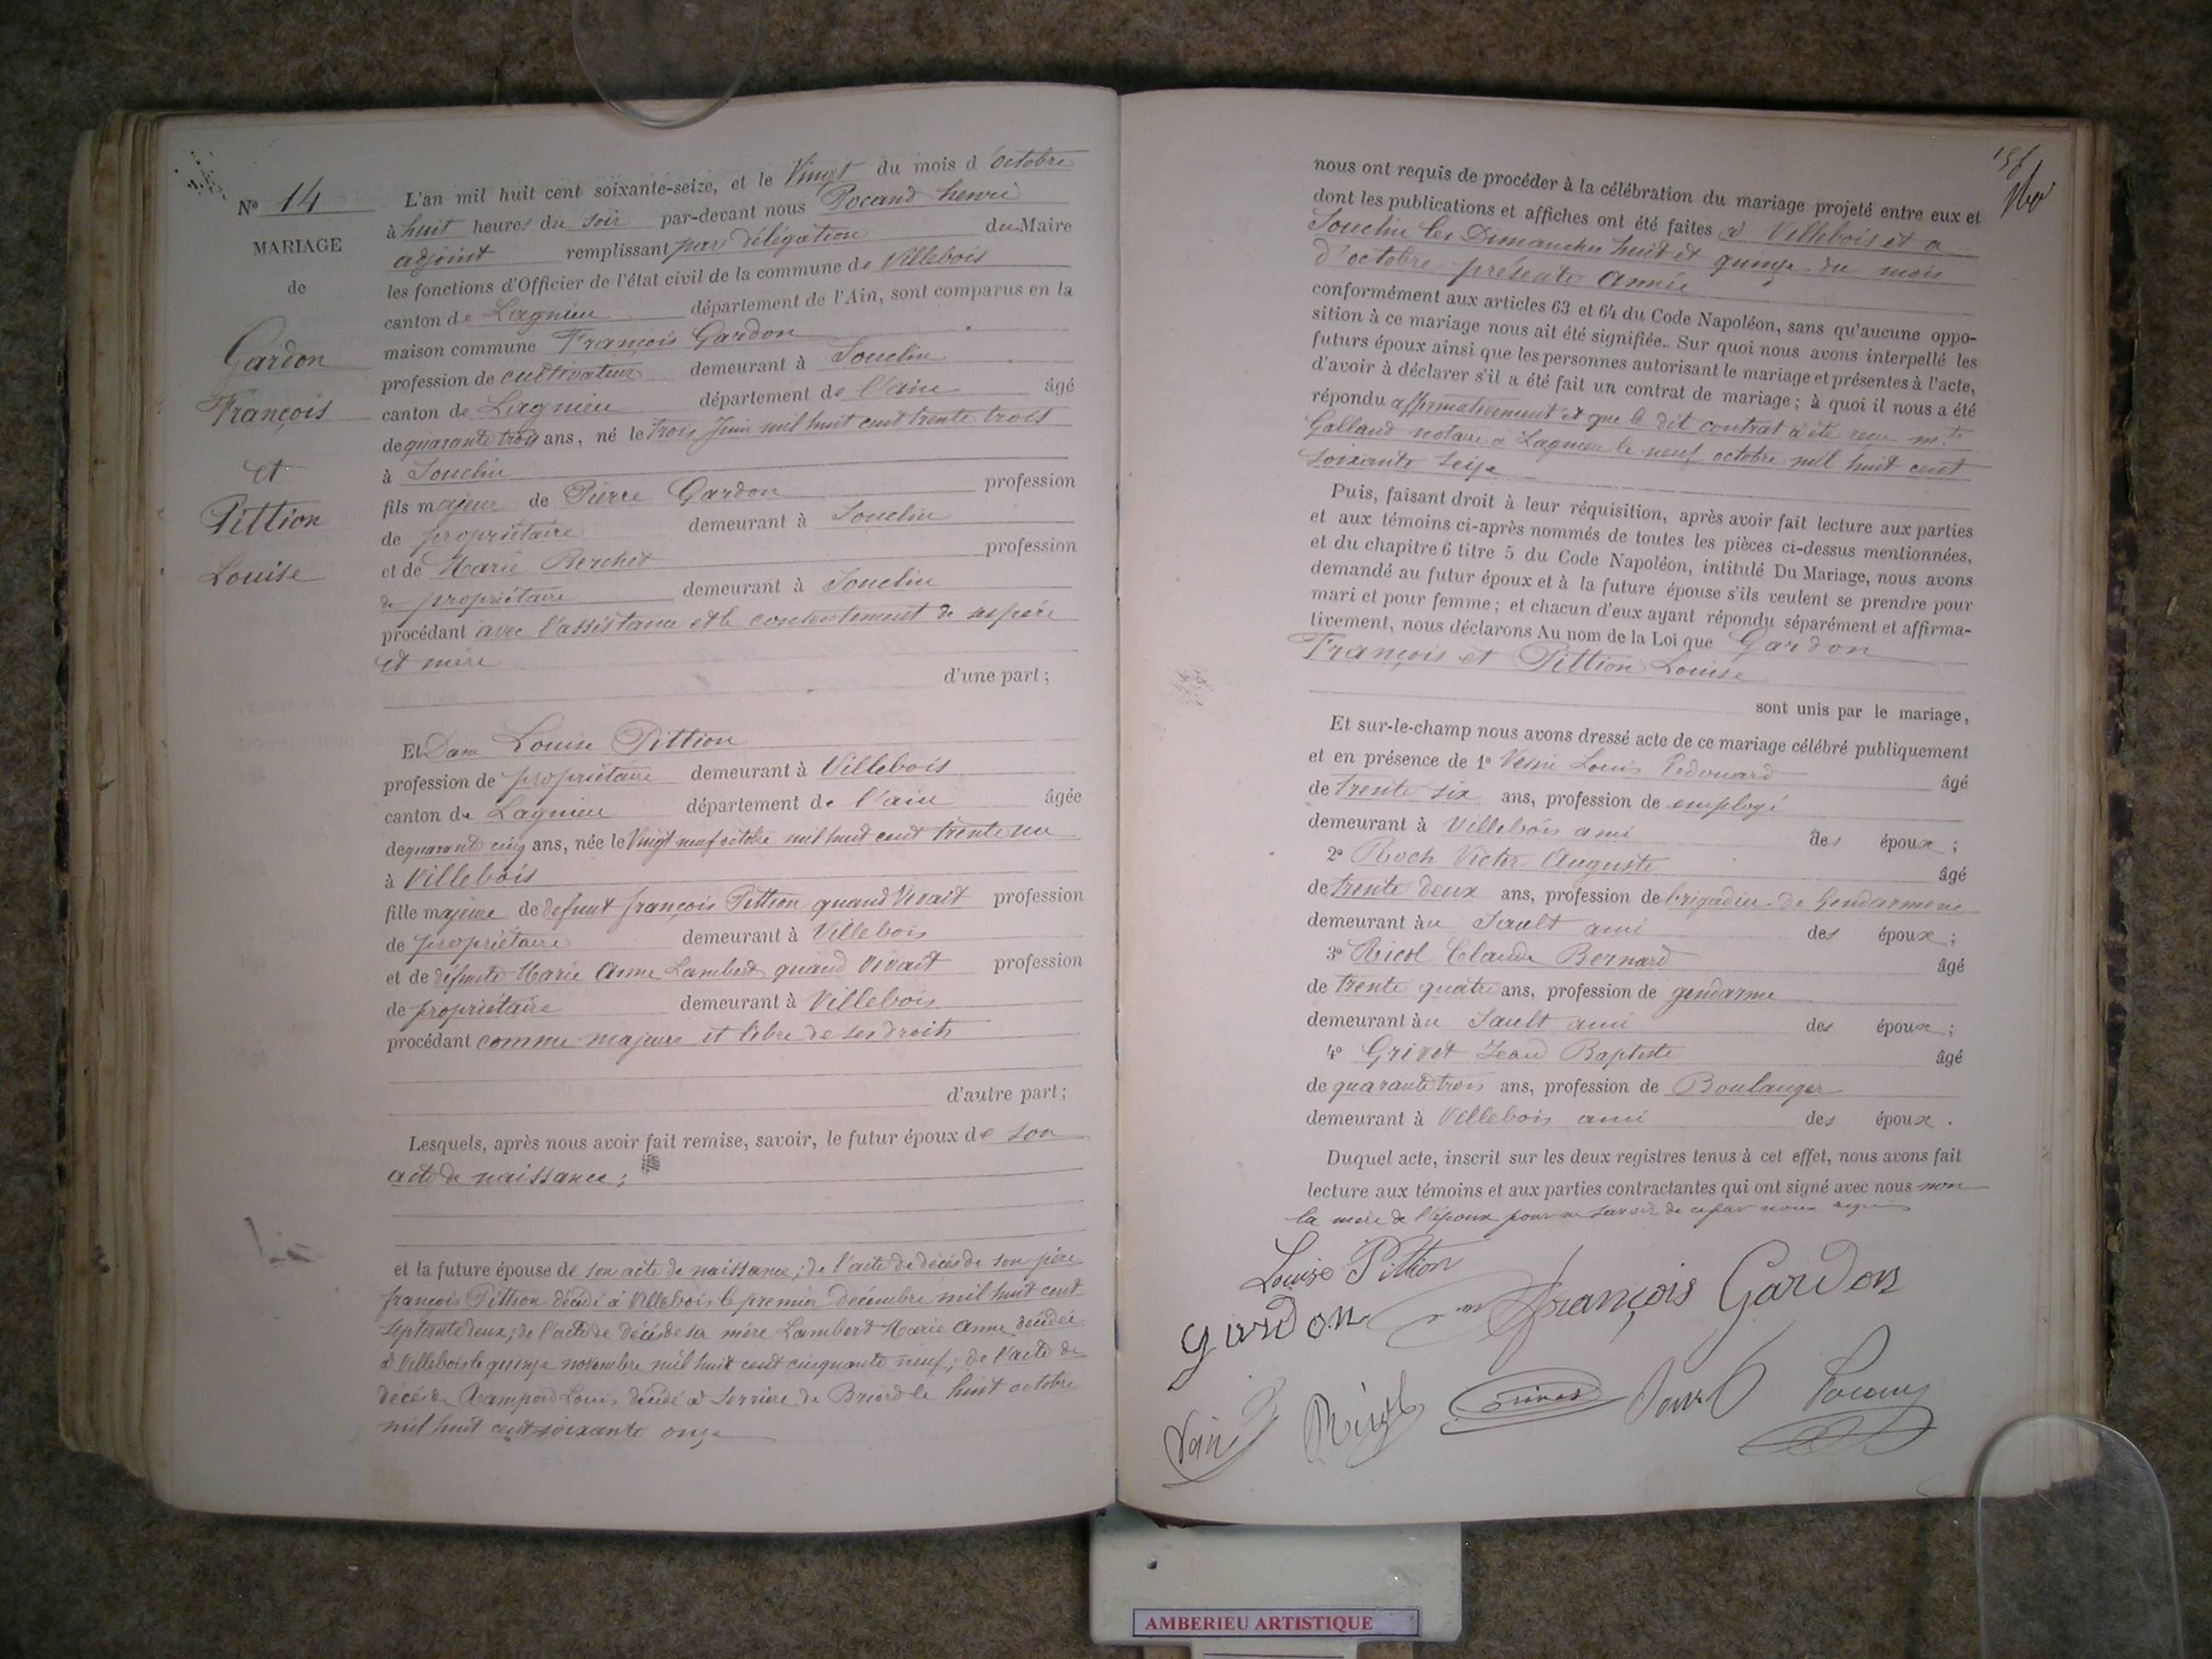 N° 14
MARIAGE
de
Gardon
François
et
Pittion
Louise
L'an mil huit cent soixante-seize, et le Vingt du mois d'octobre
à huit heures du soir par-devant nous Pocand henri
adjoint remplissant par délégation du Maire
les fonctions d'Officier de l'état civil de la commune de Villebois
canton de Lagnieu département de l'Ain, sont comparus en la
maison commune François Gardon
profession de cultivateur demeurant à Souclin
canton de Lagnieu département de l'ain âgé
de quarante trois ans, né le trois Juin mil huit cent trente trois
à Souclin
fils majeur de Pierre Gardon profession
de propriétaire demeurant à Souclin
et de Marie Berchet profession
de propriétaire demeurant à Souclin
procédant avec l'assistance et le consentement de ses père
et mère
d'une part ;
Et Dam Louise Pittion
profession de propriétaire demeurant à Villebois
canton de Lagnieu département de l'ain âgée
de quarante cinq ans, née le Vingt neuf octobre mil huit cent trente un
à Villebois
fille majeure de defunt françois Pittion quand Vivait profession
de propriétaire demeurant à Villebois
et de défunte Marie Anne Lambert quand Vivait profession
de propriétaire demeurant à Villebois
procédant comme majeure et libre de ses droits
d'autre part ;
Lesquels, après nous avoir fait remise, savoir, le futur époux de son
acte de naissance ;
et la future épouse de son acte de naissance ; de l'acte de décès de son père
françois Pittion décédé à Villebois le premier décembre mil huit cent
septante deux ; de l'acte de décès de sa mère Lambert Marie Anne décédée
à Villebois le quinze novembre mil huit cent cinquante neuf ; de l'acte de
décès de Louis décédé à Serrière de Briord le huit octobre
mil huit cent soixante onze
nous ont requis de procéder à la célébration du mariage projeté entre eux et
dont les publications et affiches ont été faites à Villebois et a
Souclin les Dimanches huit et quinze du mois
d'octobre présente année
conformément aux articles 63 et 64 du Code Napoléon, sans qu'aucune oppo-
sition à ce mariage nous ait été signifiée.. Sur quoi nous avons interpellé les
futurs époux ainsi que les personnes autorisant le mariage et présentes à l'acte,
d'avoir à déclarer s'il a été fait un contrat de mariage ; à quoi il nous a été
répondu affirmativement et que le dit contrat a été reçu mtre
Galland notaire à Lagnieu le neuf octobre mil huit cent
soixante seize
Puis, faisant droit à leur réquisition, après avoir fait lecture aux parties
et aux témoins ci-après nommés de toutes les pièces ci-dessus mentionnées,
et du chapitre 6 titre 5 du Code Napoléon, intitulé Du Mariage, nous avons
demandé au futur époux et à la future épouse s'ils veulent se prendre pour
mari et pour femme ; et chacun d'eux ayant répondu séparément et affirma-
tivement, nous déclarons Au nom de la Loi que Gardon
François et Pittion Louise
sont unis par le mariage,
Et sur-le-champ nous avons dressé acte de ce mariage célébré publiquement
et en présence de 1° Louis Edouard âgé
de trente six ans, profession de employé
demeurant à Villebois ami des époux ;
2° Roch Victor Auguste âgé
de trente deux ans, profession de brigadier de Gendarmerie
demeurant au Sault ami des époux ;
3° Ricol Claude Bernard âgé
de trente quatre ans, profession de gendarme
demeurant au Sault ami des époux ;
4° Grivet Jean Baptiste âgé
de quarante trois ans, profession de Boulanger
demeurant à Villebois ami des époux .
Duquel acte, inscrit sur les deux registres tenus à cet effet, nous avons fait
lecture aux témoins et aux parties contractantes qui ont signé avec nous non
la mère de l'époux pour ne savoir de ce par nous requis
Louise Pittion
gardon françois Gardon
AMBERIEU ARTISTIQUE